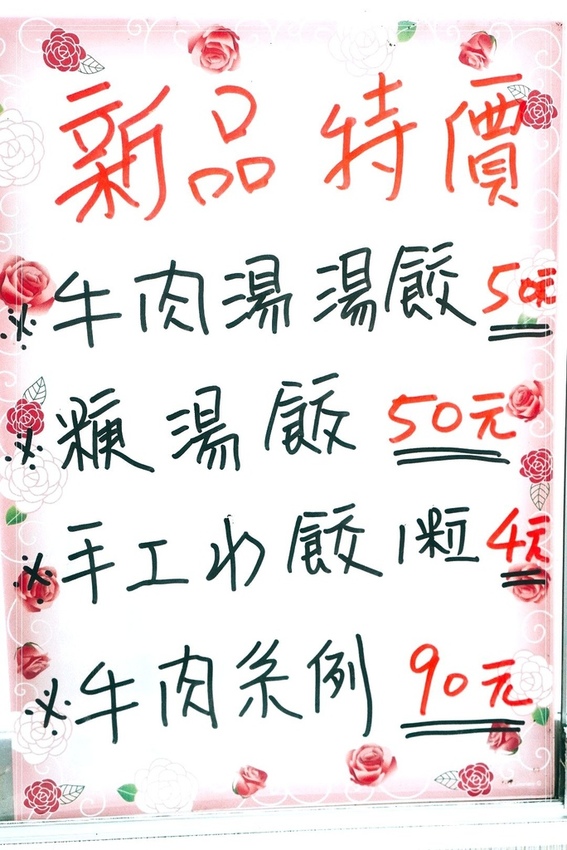 新品特價
※牛肉湯湯餃 50元
※ 湯飯 50元
※手工水餃 1粒 4元
※牛肉系例 90元